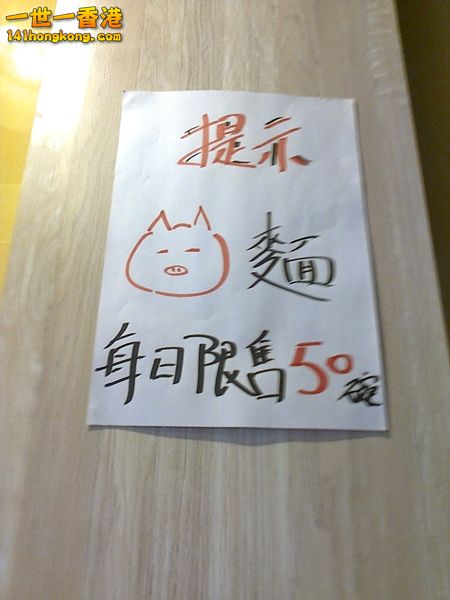 一世一香港
141hongkong.com
提示
麵
每日限售50碗